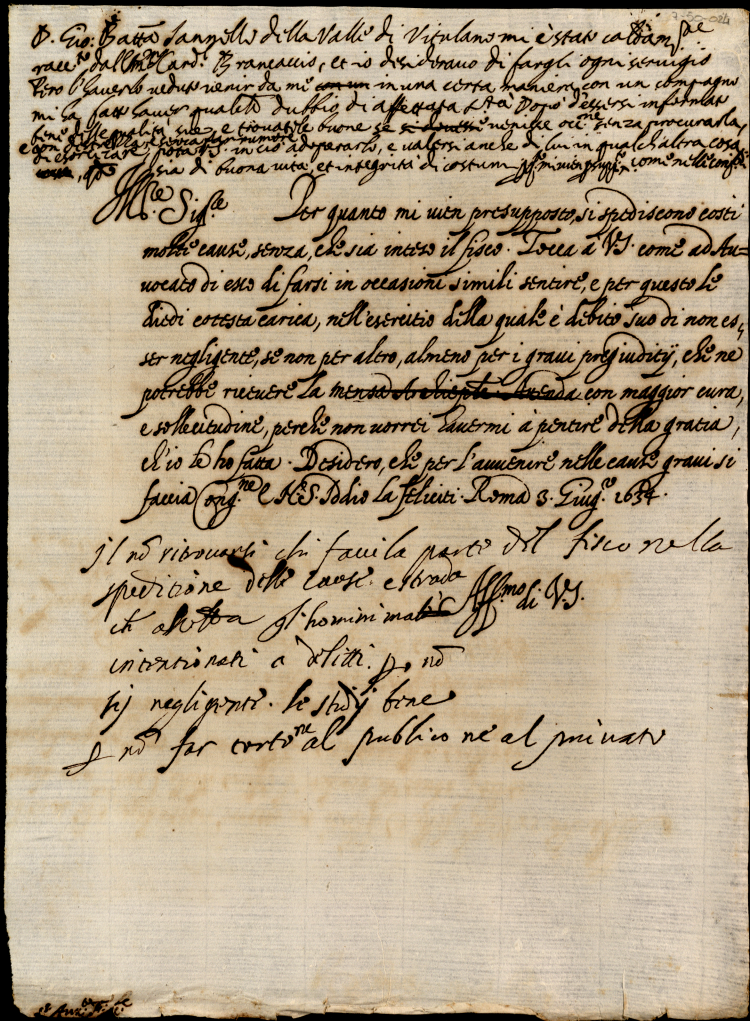 7-50-024
D. Gio: Batta Iannello della Valle di Vitulano mi è stato caldam.te
racc.to dall' Card.l Brancaccio, et io desideravo di fargli ogni servigio
Però l'haverlo veduto venir da me con un in una certa maniera con un compagno
mi ha fatt'haver qualche dubbio di affettata Dopo d'essersi informato
bene delle qualità sue, e trovatele buone se venisse occ.ne senza procurarla,
potrà V.S. in ciò adoperarlo, e valersi anche di lui in qualch'altra cosa
sia di buona vita, et integrità di costumi come nelle
Ill.re Sig.re Per quanto mi vien presupposto, si spediscono costì
molte cause, senza, che sia inteso il fisco. Tocca à V.S. come ad Au=
vocato di esso di farsi in occasioni simili sentire, e per questo le
diedi cotesta carica, nell'esercitio della quale è debito suo di non es,
ser negligente, se non per altro, almeno per i gravi pregiuditij, che ne
potrebbe ricevere la mensa Archiep.le Attenda con maggior cura,
e sollecitudine, perche non vorrei havermi à pentire della gratia,
ch'io le ho fatta. Desidero, che per l'avvenire nelle cause gravi si
faccia Cong.ne e N.S. Iddio la feliciti. Roma 3. Giug.o 1634.
Il nō ritrovarsi chi facci la parte del fisco nella
spedizione delle cause è strada
Aff.mo di V.S.
ch' alletta gl'homini mal'
intentionati a delitti. nō
sij negligente. le studij bene
p nō far torto al publico ne al privato